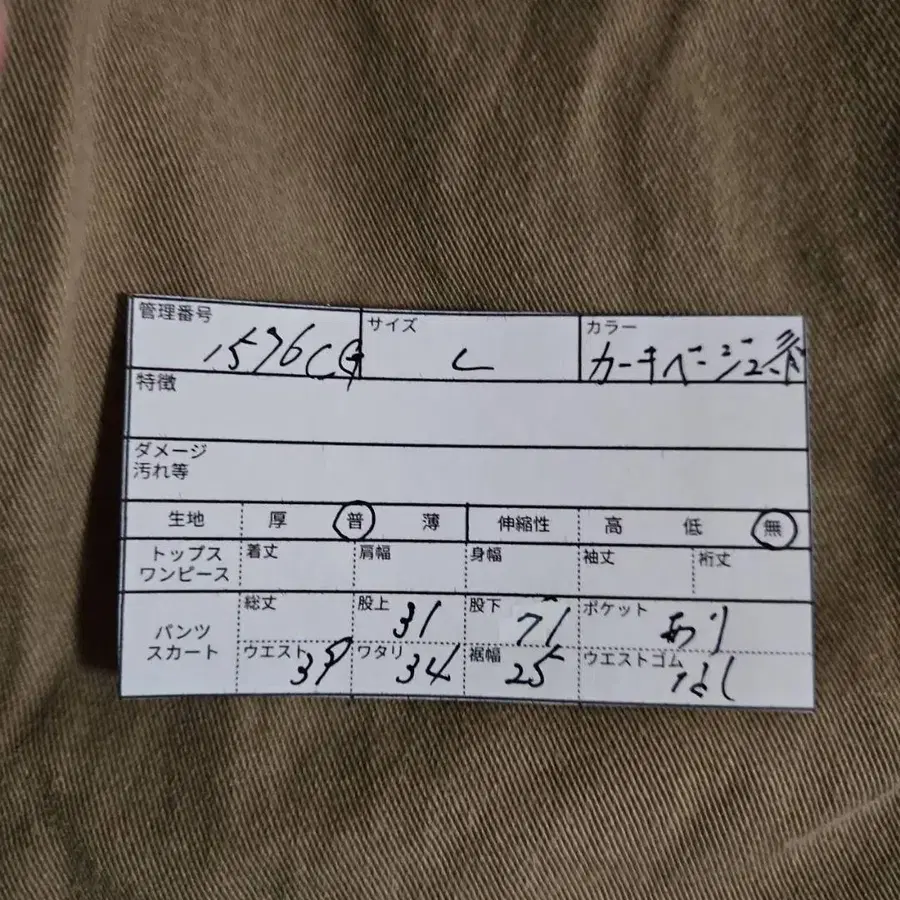 管理番号 サイズ カラー
1576CG L カーキベージュ系
特徴
ダメージ
汚れ等
生地 厚 普 薄 伸縮性 高 低 無
トップス
ワンピース 着丈 肩幅 身幅 袖丈 裄丈
パンツ
スカート 総丈 股上 31 股下 71 ポケット あり
ウエスト 39 ワタリ 34 裾幅 25 ウエストゴム なし